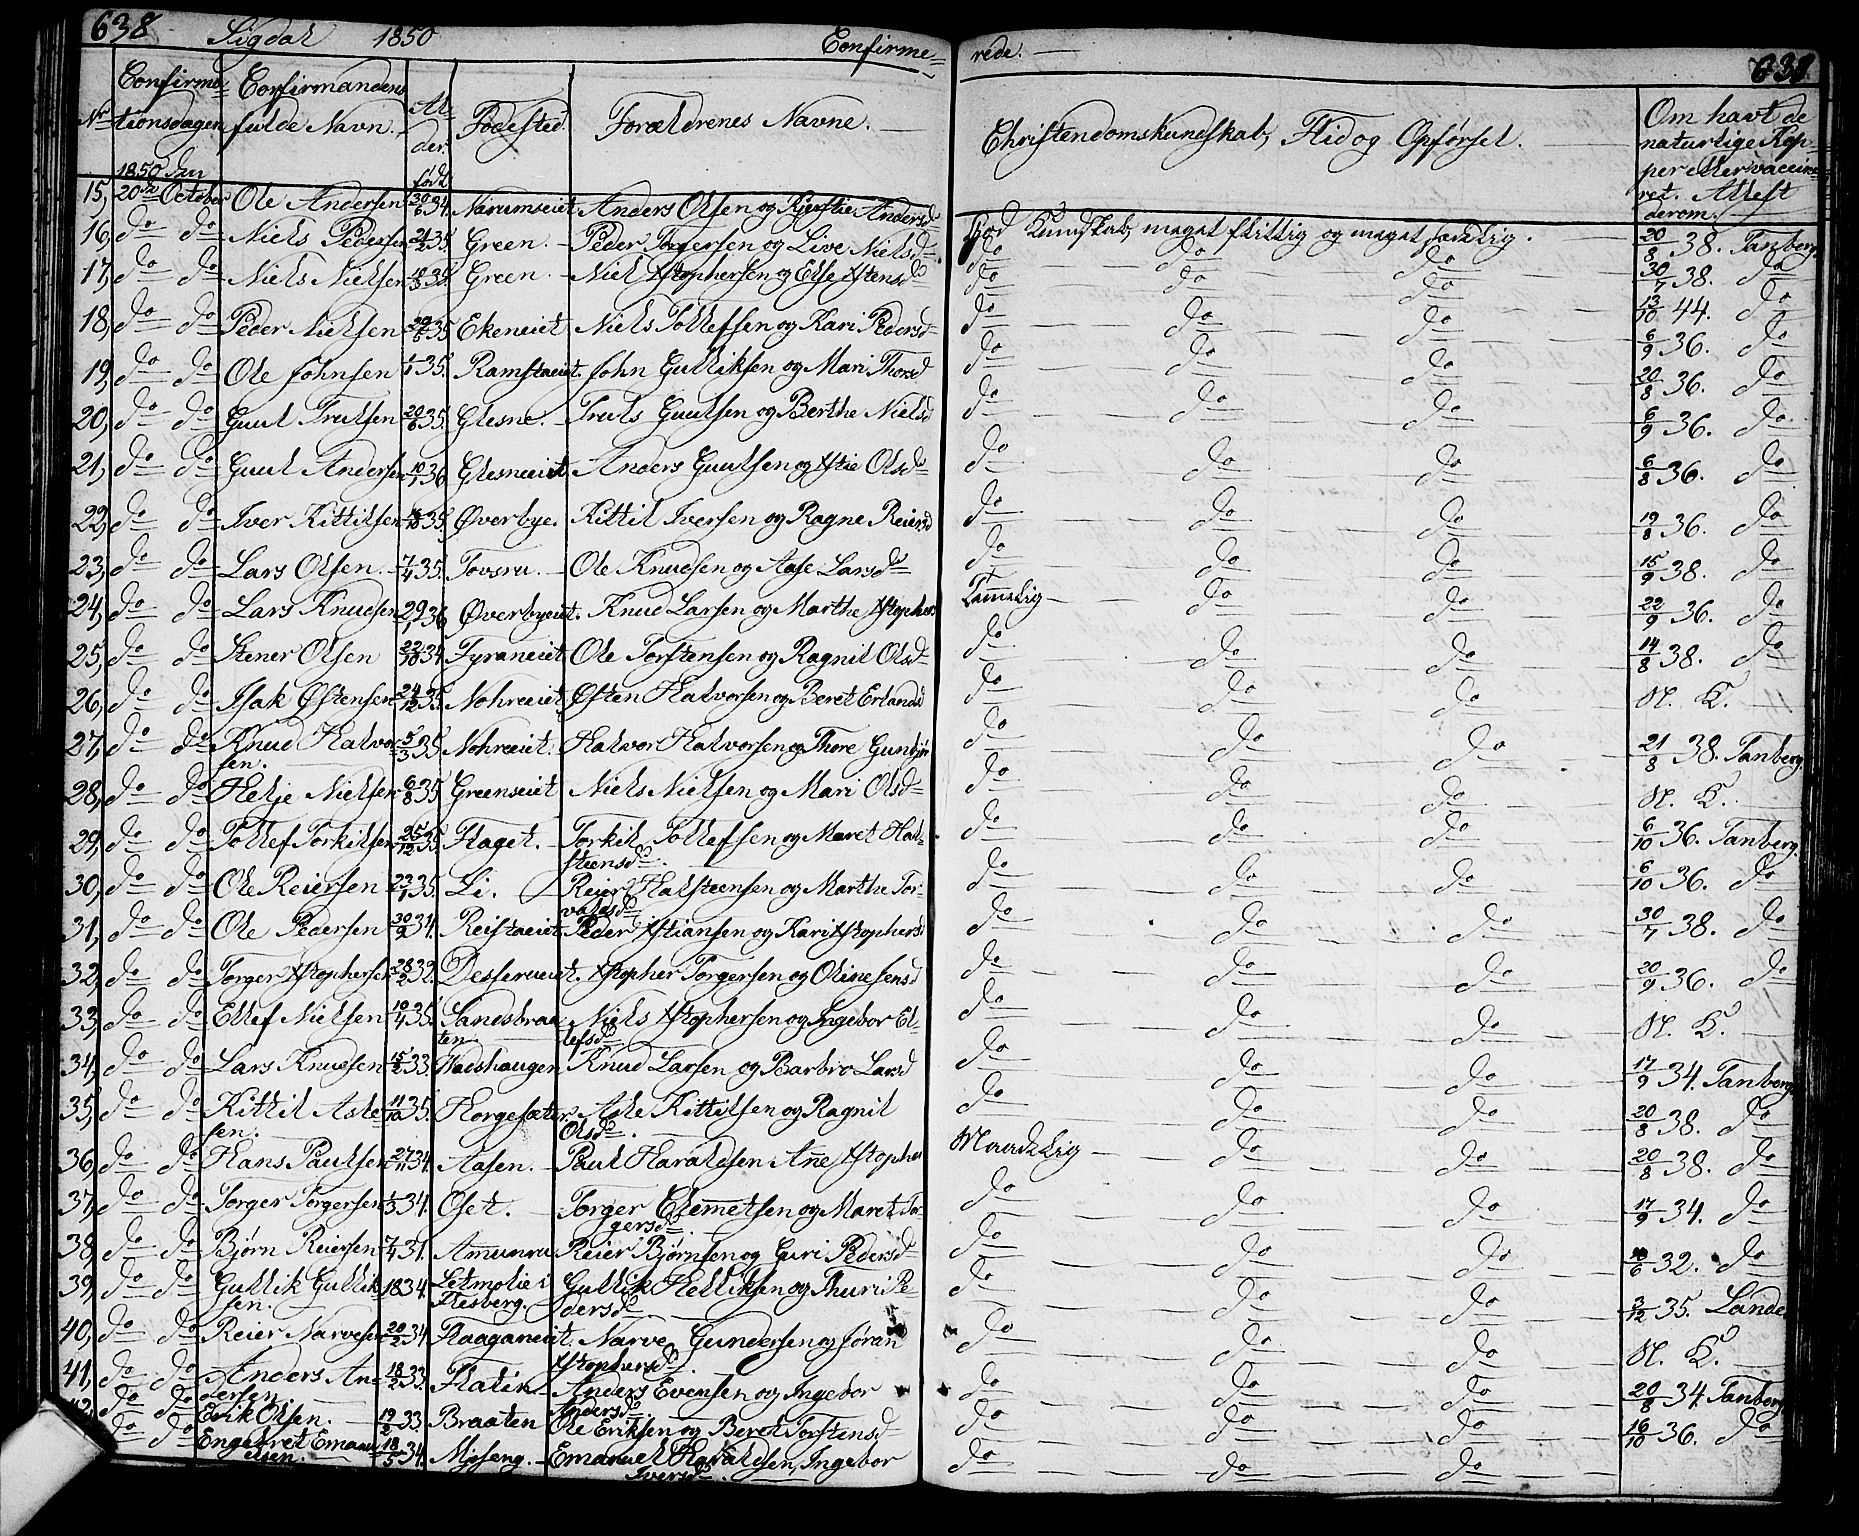 638 Sigdal 1850 Confirme= rede. 639
No Confirmationsdagen Confirmandens fulde Navn. Alder. Fødested Forældrenes Navne. Christendomskundskab, Flid og Opførsel. Om havt de naturlige Kopper eller vaccineret. Attest derom.
1850 den født
15, 20de October Ole Andersen 30/6 34. Anders Olsen og Kjerstie Andersd God Kundskab, meget flittig og meget sædelig. 20/8 38. Tanberg.
16, do do Niels Pedersen 35. Green. Peder Torgersen og Live Nielsd. do do do 30/7 38. do
17, do do Niels Nielsen 35. Green. Niels Xstophersen og Else Xstensd do do do 13/10 44. do
18, do do Peder Nielsen 35 Ekeneiet Niels Tollefsen og Kari Pedersd do do do 6/9 36. do
19, do do Ole Johnsen 35. John Gulliksen og Mari Thorsd do do do 20/8 36. do
20, do do Guul Trulsen 35. Glesne. Truls Guulsen og Berthe Nielsd do do do 6/9 36. do
21, do do Guul Andersen 10/1 36 Glesneeiet Anders Guulsen og Xstie Olsd do do do 6/8 36. do
22, do do Iver Kittilsen 35. Øverbye. Kittil Iversen og Ragne Reiersd do do do 19/8 36. do
23, do do Lars Olsen. 7/4 35. Tovsru. Ole Knudsen og Aase Larsd do do do 15/9 38. do
24, do do Lars Knudsen 29/1 36 Øverbyeeiet. Knud Larsen og Marthe Xstophers Tammelig do do 22/9 36. do
25, do do Stener Olsen 22/10 34 Fyraneiet Ole Torstensen og Ragnil Olsd do do do 14/8 38. do
26, do do Isak Østensen 24/12 35. Nohreeiet Østen Halvorsen og Beret Erlandsd do do do N. K.
27, do do Knud Halvorsen. 5/3 35. Nohreeiet. Halvor Halvorsen og Thore Gunbjør do do do 21/8 38. Tanberg.
28, do do Helje Nielsen 6/8 35 Greenseiet Niels Nielsen og Mari Olsd do do do N. K.
29, do do Tollef Torkilsen 25/12 35 Flaget. Torkil Tollefsen og Maret Halsteensd. do do do 6/10 36. Tanberg.
30, do do Ole Reiersen 23/1 35. Li. Reier Halsteensen og Marthe Torvaldsd do do do 6/10 36. do
31, do do Ole Pedersen 30/9 34. Reistaeiet Peder Xstiansen og Kari Xstophersd do do do 30/7 38. do
32, do do Torger Xstophersen 28/2 32. Xstopher Torgersen og Oline Jensd do do do 20/9 36. do
33, do do Ellef Nielsen 10/4 35. Sandsbraaten Niels Xstophersen og Ingebor Ellefsd do do do N. K.
34, do do Lars Knudsen 15/2 33. Knud Larsen og Barbro Larsd do do do 17/9 34. Tanberg.
35, do do Kittil Aslesen. 11/10 35. Horgesæter Asle Kittilsen og Ragnil Olsd. do do do 20/8 38. do
36, do do Hans Paulsen 27/11 34. Aasen. Paul Haraldsen Anne Xstophers Maadelig do do 20/8 38. do
37, do do Torger Torgersen 34. Oset. Torger Clemetsen og Maret Torgersd do do do 17/9 34. do
38, do do Bjørn Reiersen 7/4 31. Amunru Reier Bjørnsen og Guri Pedersd do do do 32. do
39, do do Gullik Gulliksen. 1834. i Flesberg. Gullik Helliksen og Thuri Pedersd do do do 3/12 35. Lande
40, do do Reier Narvesen 20/2 34 Flaaganeiet. Narve Gundersen og Jøran Xstophersd. do do do N. K.
41, do do Anders Andersen 18/2 33. Flatin Anders Evensen og Ingebor Andersd do do do 20/8 34. Tanberg.
42, do do Erik Olsen. 19/2 33. Braaten Ole Eriksen og Beret Torstensd do do do 16/10 36. do
do do Engebret Emanuelsen. 18/5 34. Mjøseng. Emanuel Haraldsen, Ingebor Iversd. do do do